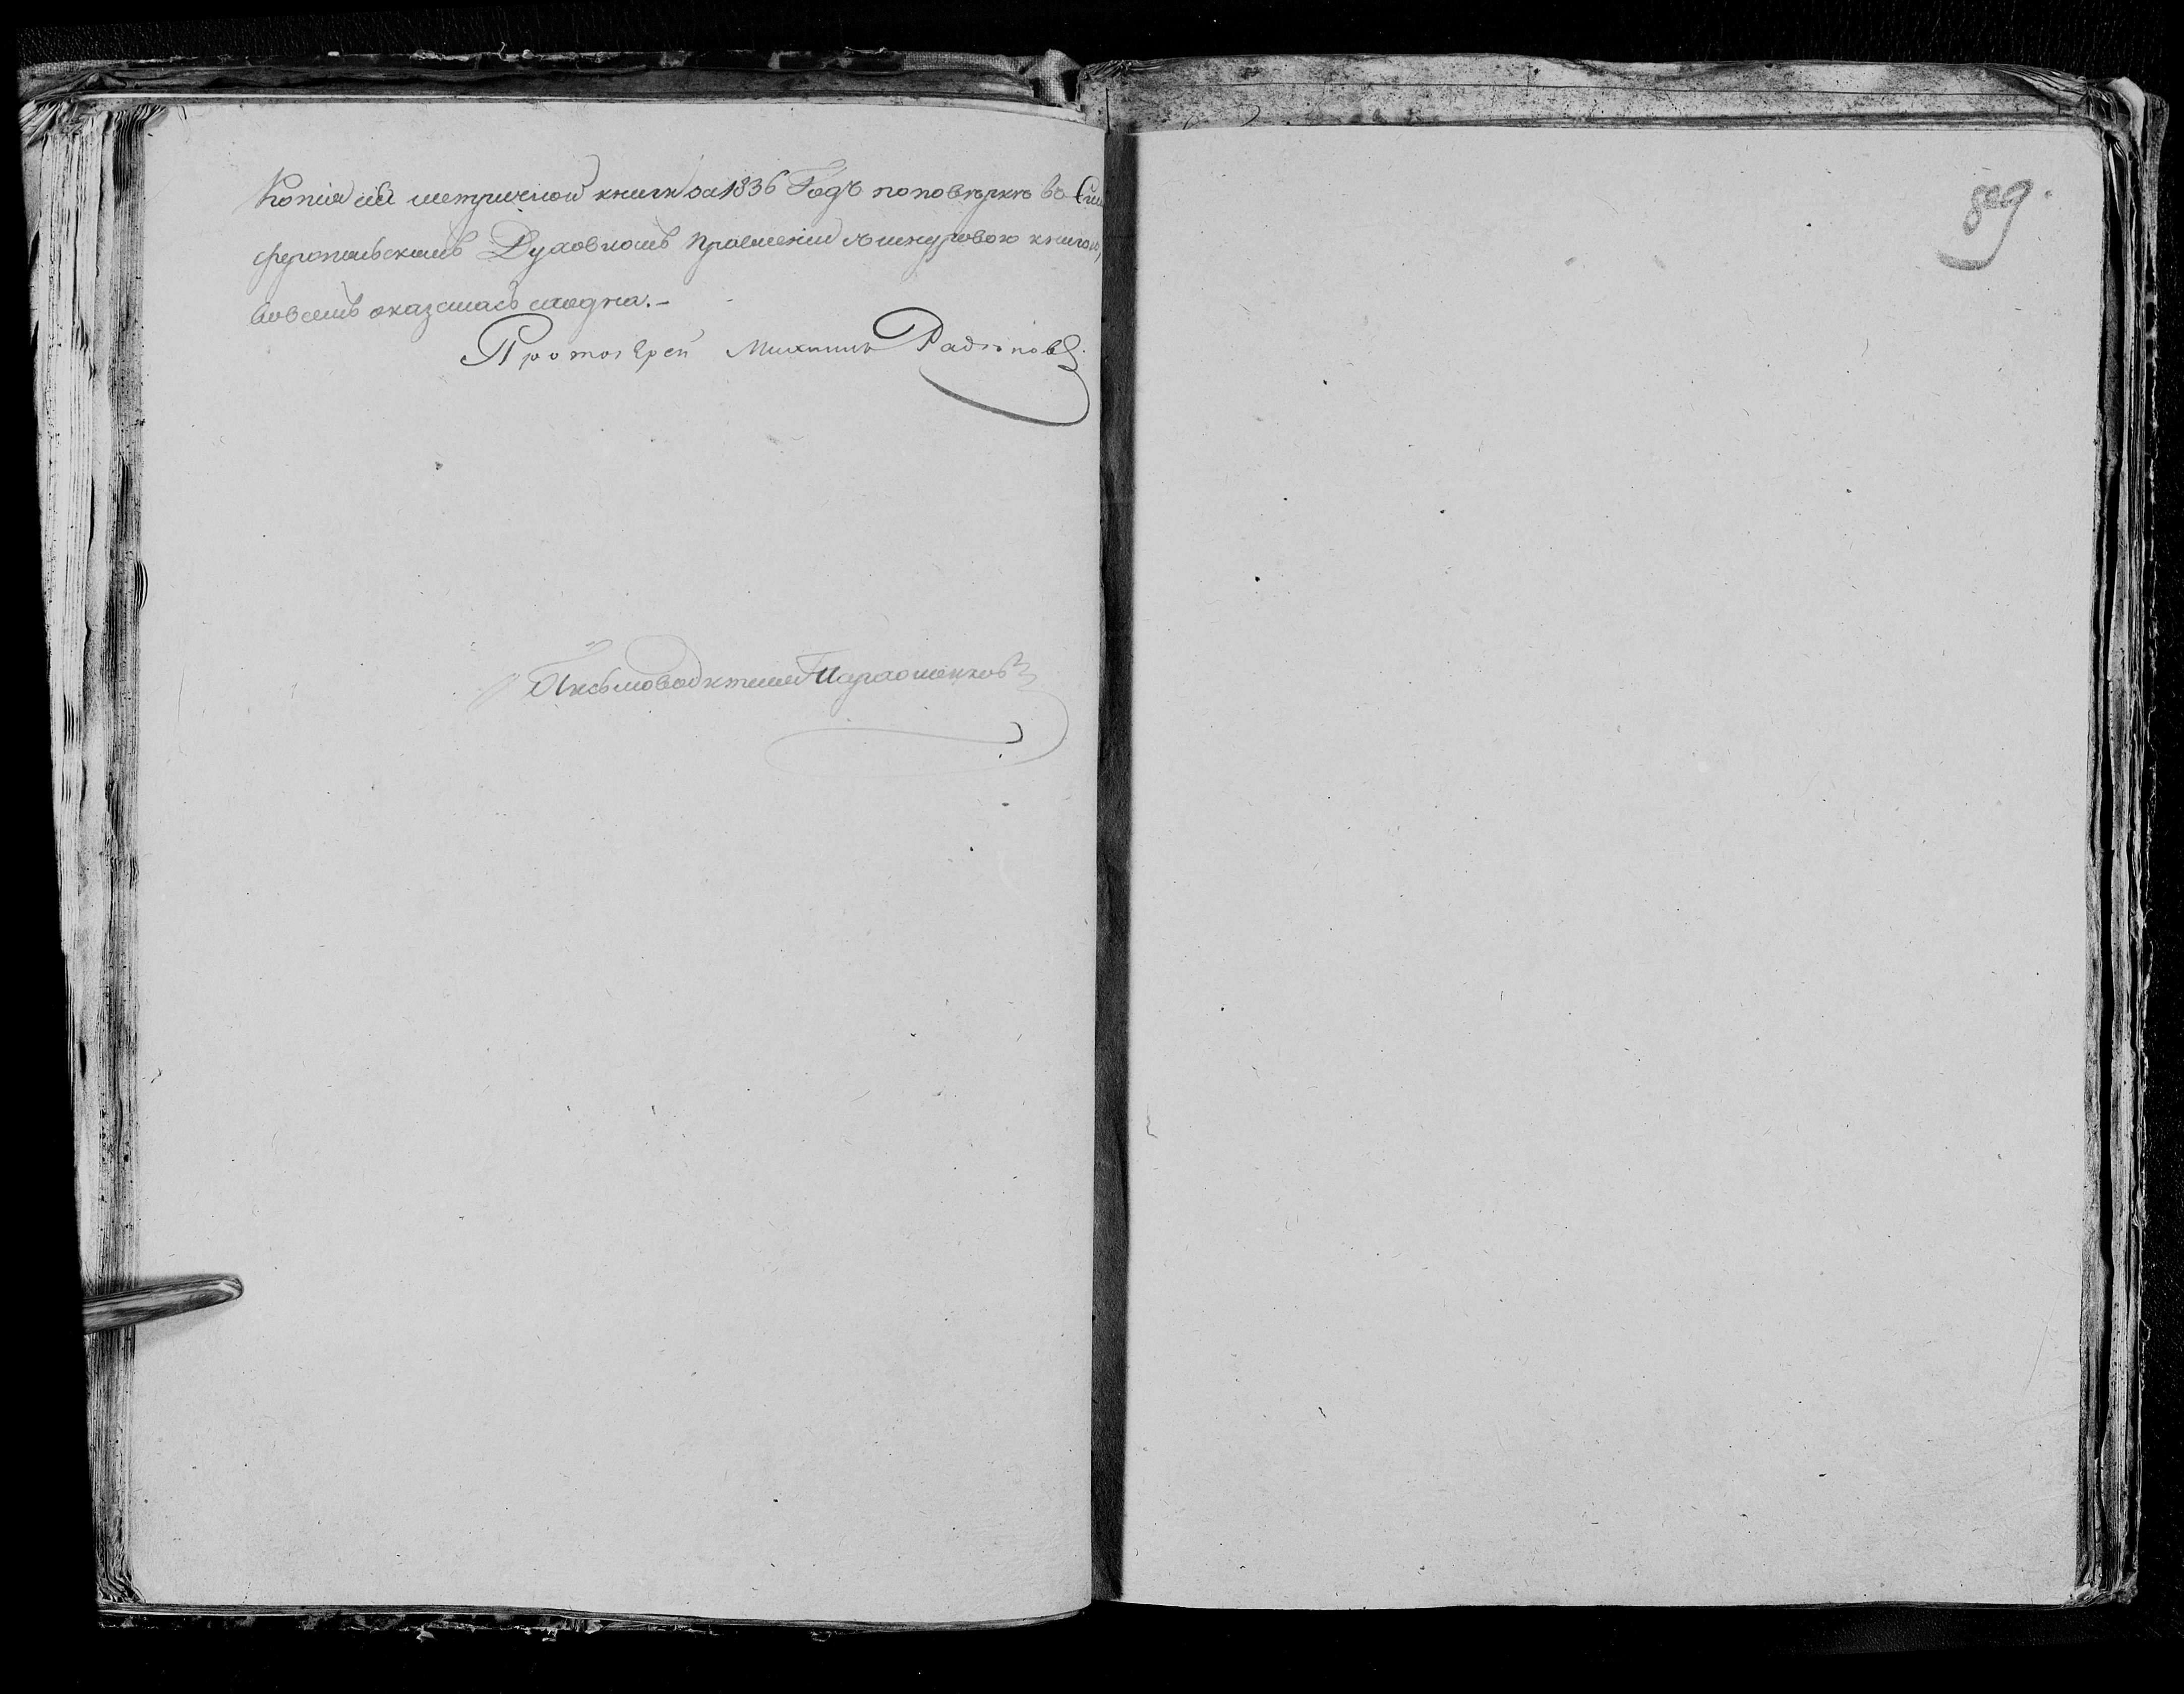 Копія сій метричной книги за 1836 Годъ по повѣркѣ въ Сим
феропольскомъ Духовномъ Правленіи съ шнуровою книгою,
вовсемъ оказалась сходна.-
Протоіерей Михаилъ Радіоновъ.
Письмоводитель